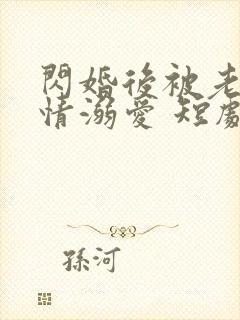 閃婚後被老
情溺愛 短劇
孫河